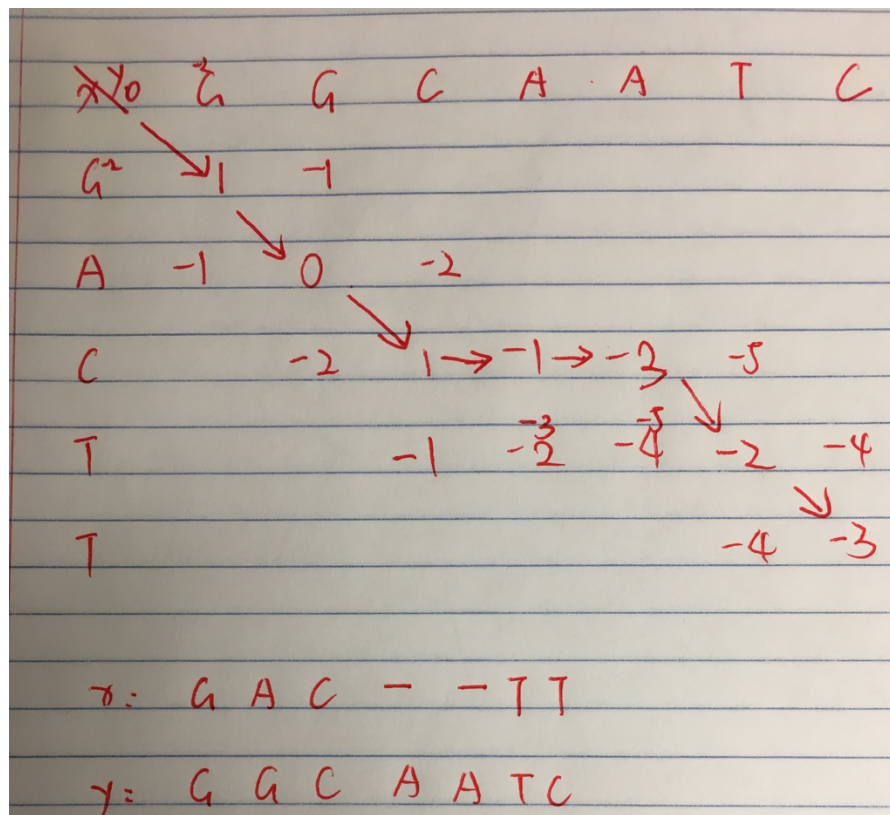 x\y 0 G -2 G C A A T C
G -2 1 -1
A -1 0 -2
C -2 1 → -1 → -3 -5
-3 -5
T -1 -2 -4 -2 -4
T -4 -3
x: G A C - - T T
y: G G C A A T C